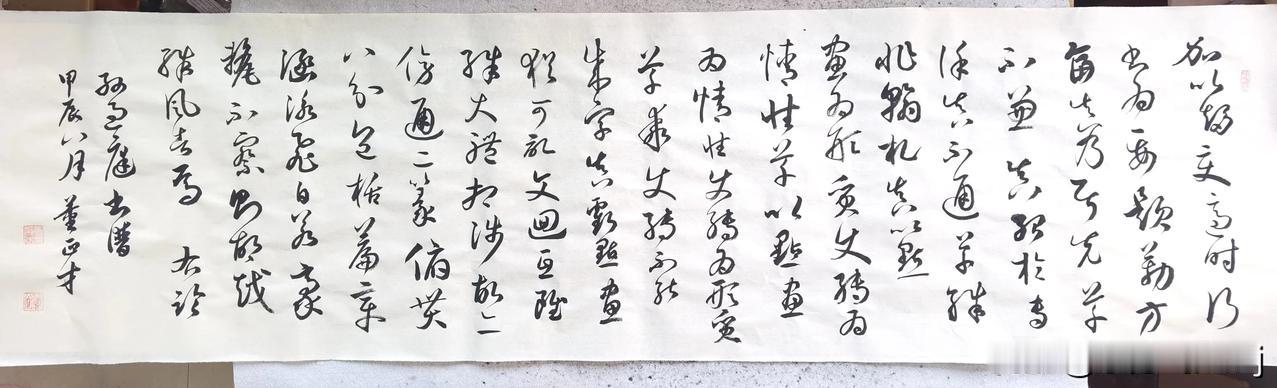 加以趨變適時行
書為要題勒方
畐真乃居先草
不兼真殆於專
謹真不通草殊
非翰札真以點
畫為形質使轉為
情性草以點畫
為情性使轉為形質
草乖使轉不能
成字真虧點畫
猶可記文迴互雖
殊大體相涉故亦
傍通二篆俯貫
八分包括篇章
涵泳飛白若豪
釐不察則胡越
殊風者焉 右
孫過庭書譜
甲辰八月 董正才